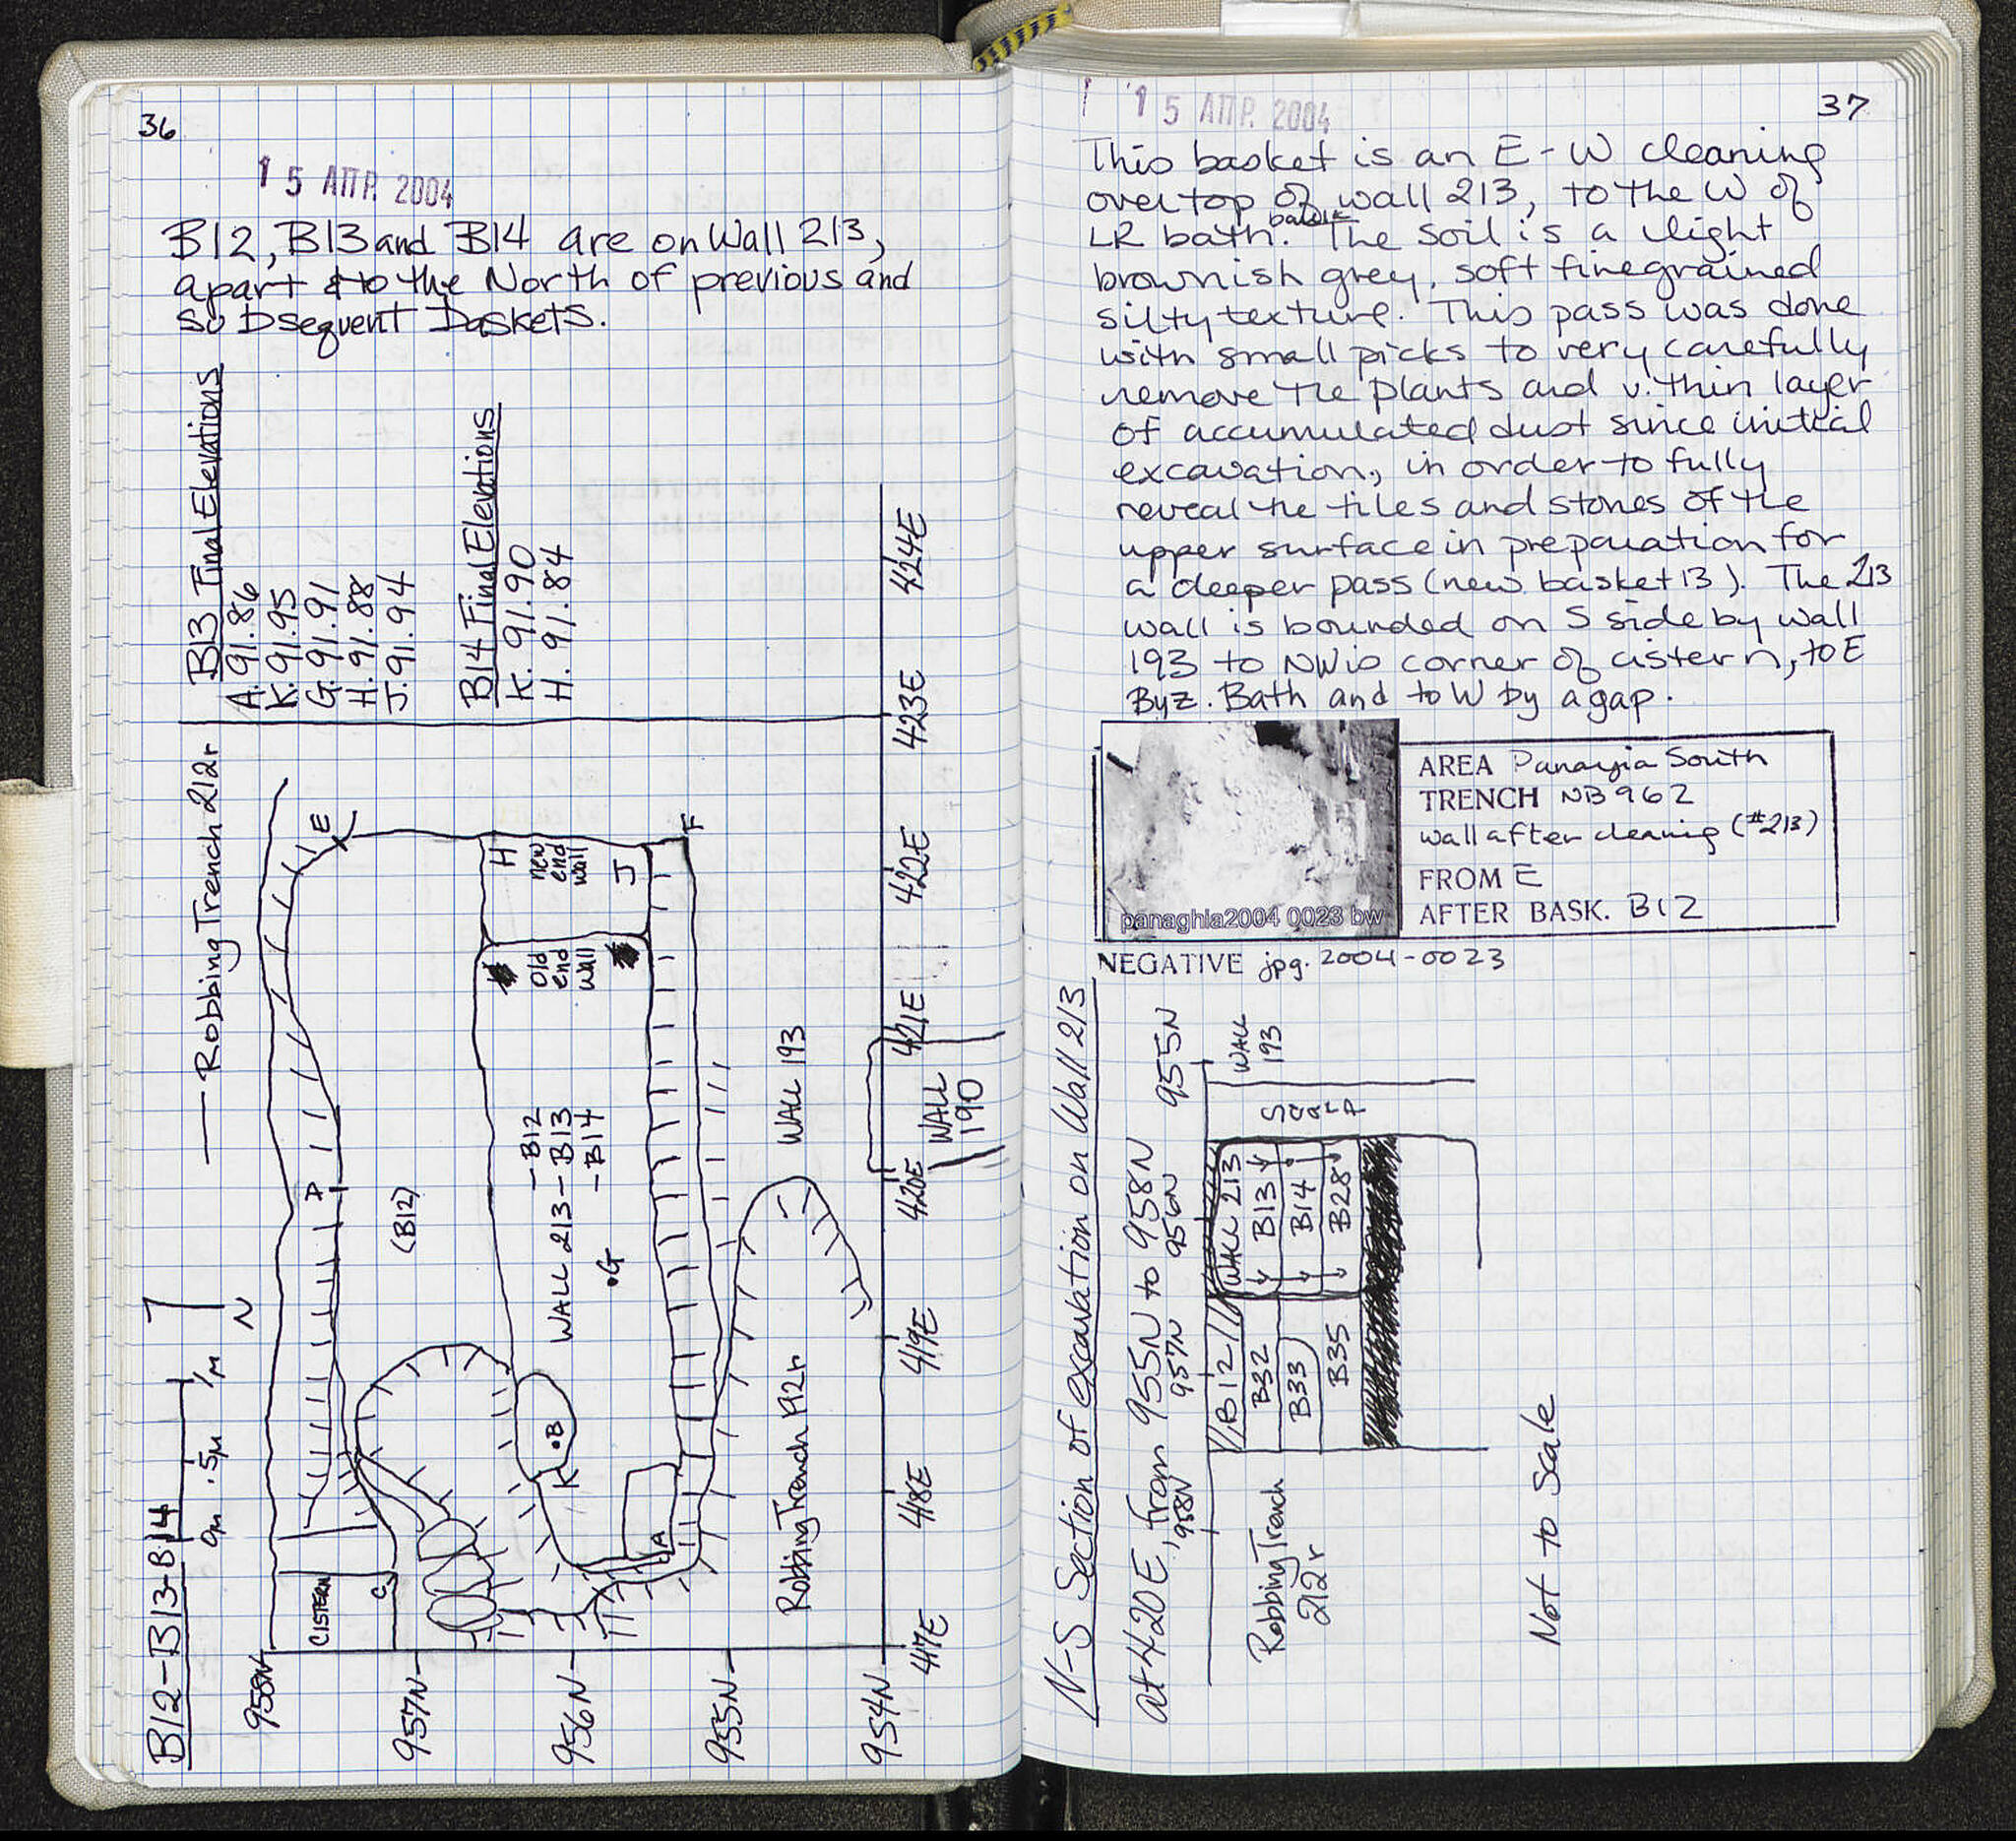 36
15 ΑΠΡ. 2004
B12, B13 and B14 are on Wall 213,
apart & to the North of previous and
subsequent baskets.
B13 Final Elevations
A. 91.86
K. 91.95
G. 91.91
H. 91.88
J. 91.94
B14 Final Elevations
K. 91.90
H. 91.84
B12-B13-B14
0m .5m 1m
N
Robbing Trench 212r
958N
957N
956N
955N
954N
417E
418E
419E
420E
421E
422E
423E
424E
CISTERN
C
D
E
F
(B12)
H
new
end
wall
J
Old
end
wall
WALL 213 - B12
- B13
- B14
.G
.B
K
A
WALL 193
WALL
190
Robbing Trench 192r
37
15 ΑΠΡ. 2004
This basket is an E-W cleaning
over top of wall 213, to the W of
LR bath. baulk The soil is a light
brownish grey, soft finegrained
silty texture. This pass was done
with small picks to very carefully
remove the plants and v. thin layer
of accumulated dust since initial
excavation, in order to fully
reveal the tiles and stones of the
upper surface in preparation for
a deeper pass (new basket 13). The 213
wall is bounded on S side by wall
193 to NW is corner of cistern, to E
Byz. Bath and to W by a gap.
panaghia2004 0023 bw
AREA Panayia South
TRENCH NB 962
wall after cleaning (#213)
FROM E
AFTER BASK. B12
NEGATIVE jpg. 2004-0023
N-S Section of excavation on Wall 213
at 420E, from 955N to 958N
958N
957N
956N
955N
WALL
193
Scarp
WALL 213
B12
B13
B14
B28
B32
B33
B35
Robbing Trench
212r
Not to Scale